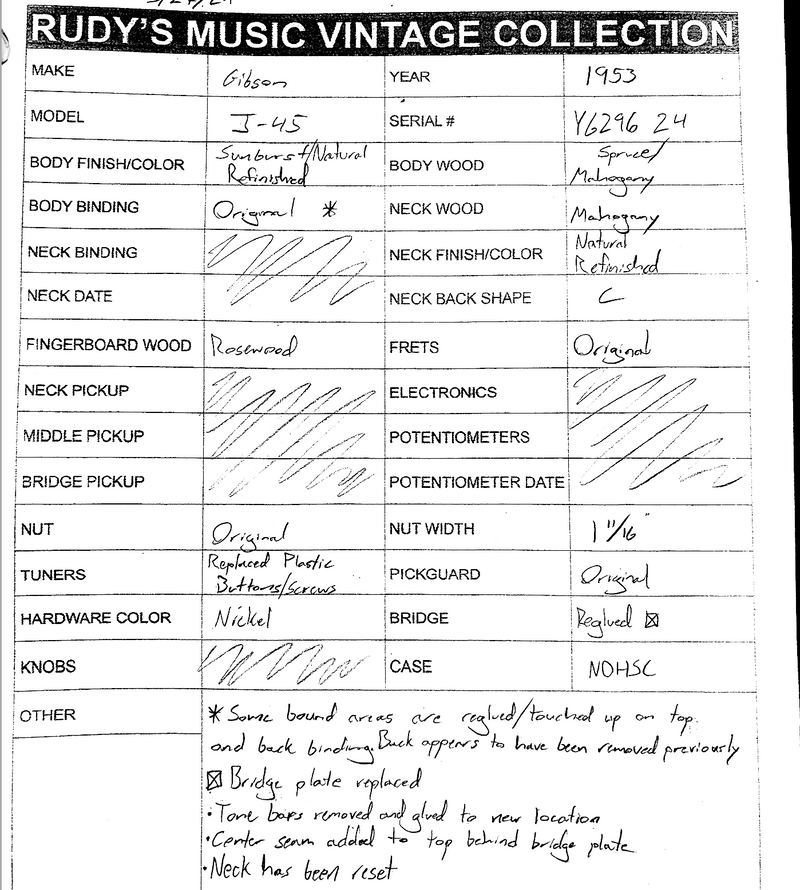 RUDY'S MUSIC VINTAGE COLLECTION
MAKE Gibson YEAR 1953
MODEL J-45 SERIAL # Y6296 24
BODY FINISH/COLOR Sunburst/Natural Refinished BODY WOOD Spruce/ Mahogany
BODY BINDING Original * NECK WOOD Mahogany
NECK BINDING NECK FINISH/COLOR Natural Refinished
NECK DATE NECK BACK SHAPE C
FINGERBOARD WOOD Rosewood FRETS Original
NECK PICKUP ELECTRONICS
MIDDLE PICKUP POTENTIOMETERS
BRIDGE PICKUP POTENTIOMETER DATE
NUT Original NUT WIDTH 1 11/16"
TUNERS Replaced Plastic Buttons/Screws PICKGUARD Original
HARDWARE COLOR Nickel BRIDGE Reglued ☒
KNOBS CASE NOHSC
OTHER * Some bound areas are reglued/touched up on top
and back binding. Back appears to have been removed previously
☒ Bridge plate replaced
• Tone bars removed and glued to new location
• Center seam added to top behind bridge plate
• Neck has been reset